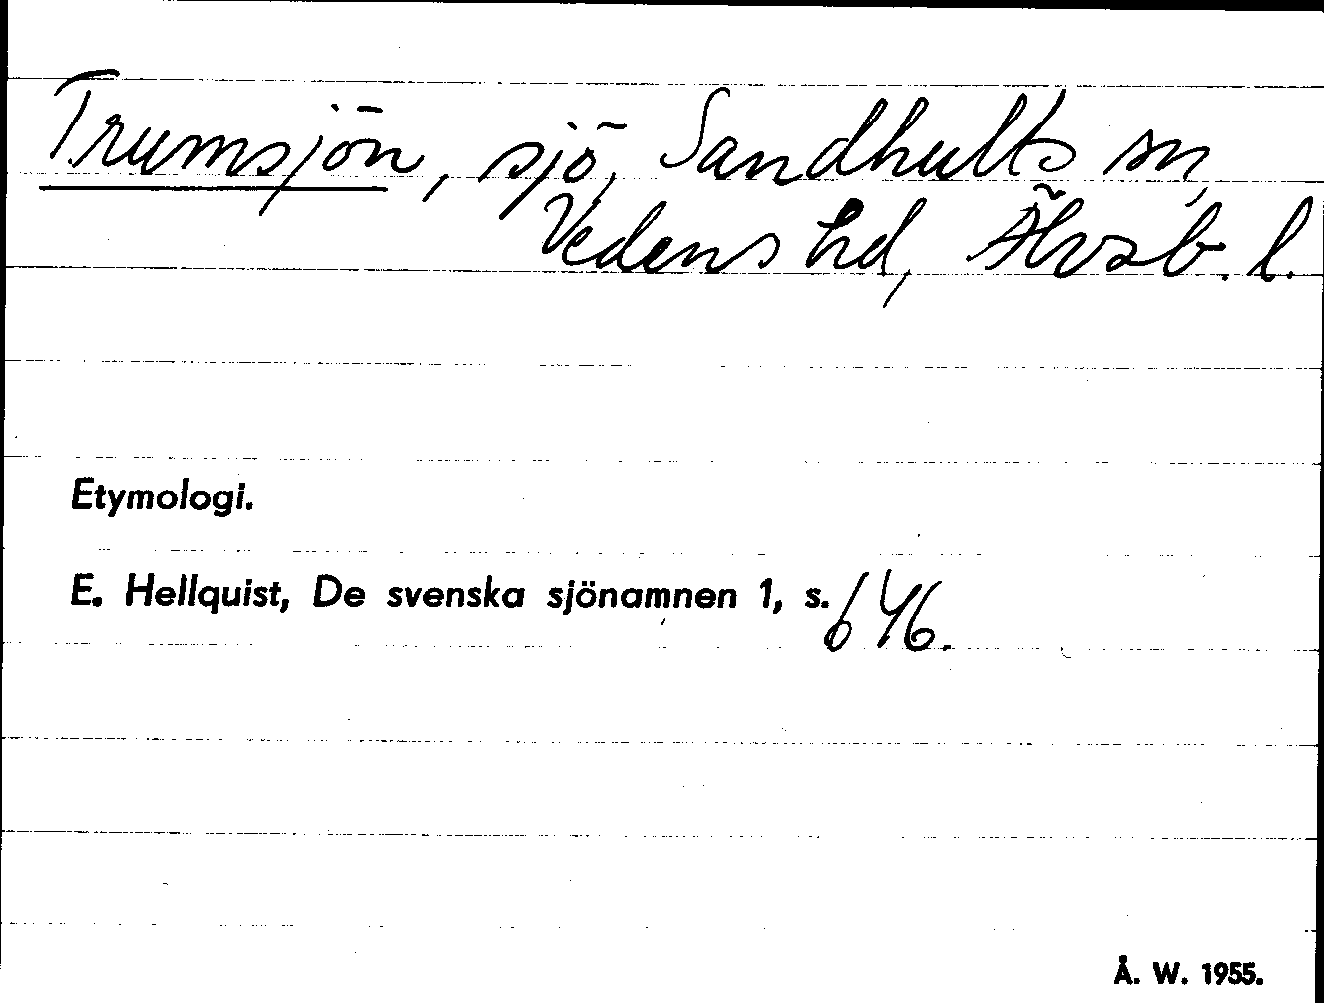 Trumsjön, sjö, Sandhults sn,
Vedens hd, Älvsb. l.
Etymologi.
E. Hellquist, De svenska sjönamnen 1, s. 646.
Å. W. 1955.